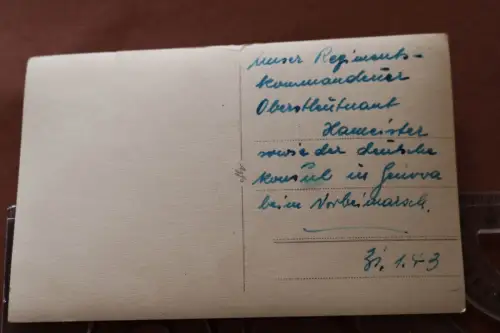 Unser Regiments-
kommandeur
Oberstleutnant
Hameister
sowie der deutsche
Konsul in Genova
beim Vorbeimarsch.
31. 1. 43